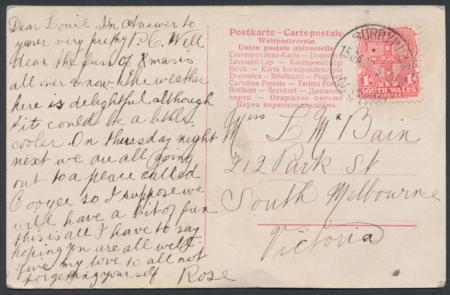 Dear Louie. In answer to
your very pretty P.C. Well
dear the fun of Xmas is
all over now the weather
here is delightful although
it could be a little
cooler. On Thursday night
next we are all going
out to a place called
so I suppose we
will have a bit of fun
this is all I have to say
hoping you are all well
Give my love to all not
forgetting yourself
Rose
Postkarte - Carte postale
Weltpostverein
Union postale universelle
Correspondenz-Karte - Correspondenzkarte
Levelező-Lap - Korespondenční lístek
Dopisnica - Briefkaart - Post card
Cartolina Postale - Tarjeta Postal
Brefkort - Brevkort - Дописная
карта - Открытое письмо
Карта корреспондентна
SURRY HILLS
15
N.S.W
1d
SOUTH WALES
Miss L M Bain
212 Park St
South Melbourne
Victoria